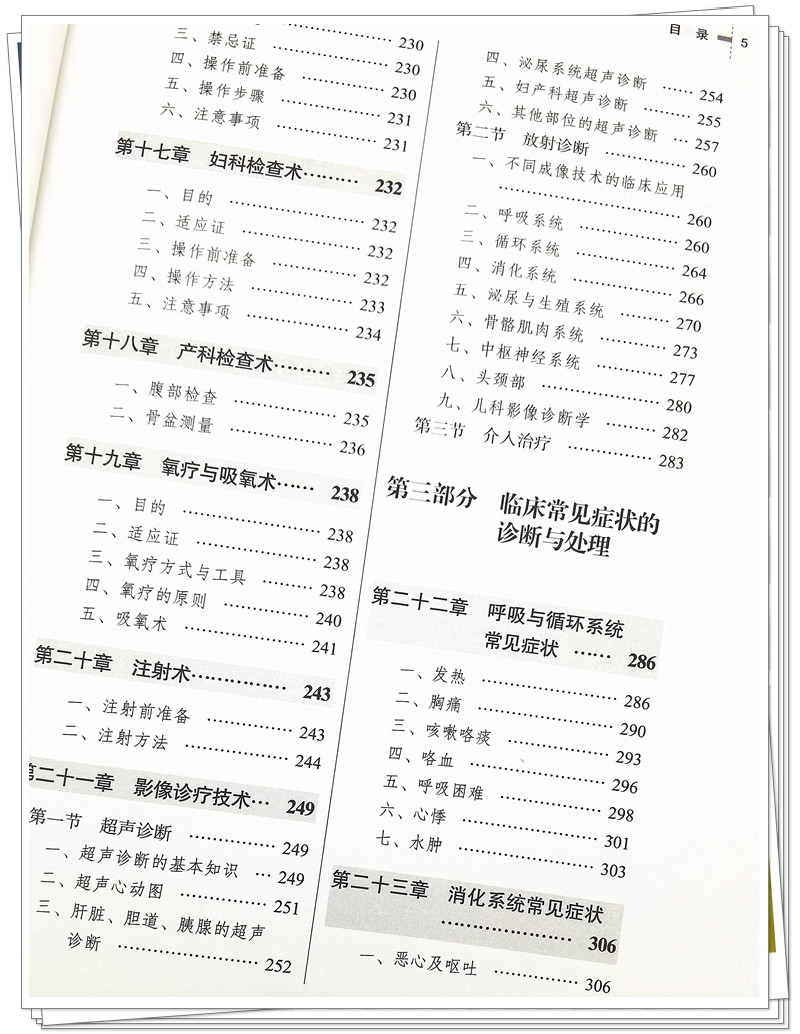 目　录　5
230
三、禁忌证 …… 230
四、操作前准备 …… 230
五、操作步骤 …… 231
六、注意事项 …… 231
第十七章　妇科检查术……… 232
一、目的 …… 232
二、适应证 …… 232
三、操作前准备 …… 232
四、操作方法 …… 233
五、注意事项 …… 234
第十八章　产科检查术……… 235
一、腹部检查 …… 235
二、骨盆测量 …… 236
第十九章　氧疗与吸氧术…… 238
一、目的 …… 238
二、适应证 …… 238
三、氧疗方式与工具 …… 238
四、氧疗的原则 …… 240
五、吸氧术 …… 241
第二十章　注射术…………… 243
一、注射前准备 …… 243
二、注射方法 …… 244
第二十一章　影像诊疗技术… 249
第一节　超声诊断 …… 249
一、超声诊断的基本知识 … 249
二、超声心动图 …… 251
三、肝脏、胆道、胰腺的超声
诊断 …… 252
四、泌尿系统超声诊断 …… 254
五、妇产科超声诊断 …… 255
六、其他部位的超声诊断 … 257
第二节　放射诊断 …… 260
一、不同成像技术的临床应用
…… 260
二、呼吸系统 …… 260
三、循环系统 …… 264
四、消化系统 …… 266
五、泌尿与生殖系统 …… 270
六、骨骼肌肉系统 …… 273
七、中枢神经系统 …… 277
八、头颈部 …… 280
九、儿科影像诊断学 …… 282
第三节　介入治疗 …… 283
第三部分　临床常见症状的
诊断与处理
第二十二章　呼吸与循环系统
常见症状 …… 286
一、发热 …… 286
二、胸痛 …… 290
三、咳嗽咯痰 …… 293
四、咯血 …… 296
五、呼吸困难 …… 298
六、心悸 …… 301
七、水肿 …… 303
第二十三章　消化系统常见症状
…… 306
一、恶心及呕吐 …… 306